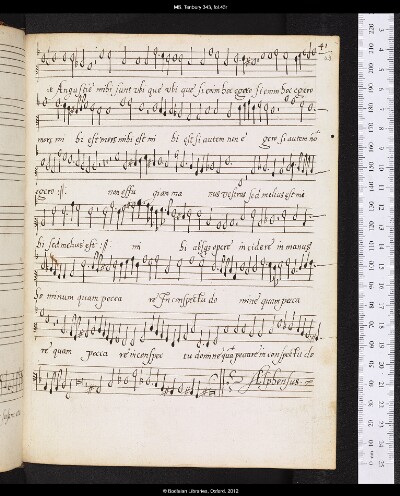 MS. Tenbury 343, fol.43r
43
æ Angustiæ mihi sunt vbi que vbi que si enim hoc egero si enim hoc egero
mors mi hi est mors mihi est mi hi est si autem non e gero si autem nō
egero :||: non effu giam ma nus vestras sed melius est mi
hi sed melius est :||: mi hi absq; opere incidere in manus
quam pecca re in conspectu do mine quam pecca
re quam pecca re in conspec tu domine quā peccare in conspectu do
Alphonsus
© Bodleian Libraries, Oxford, 2012